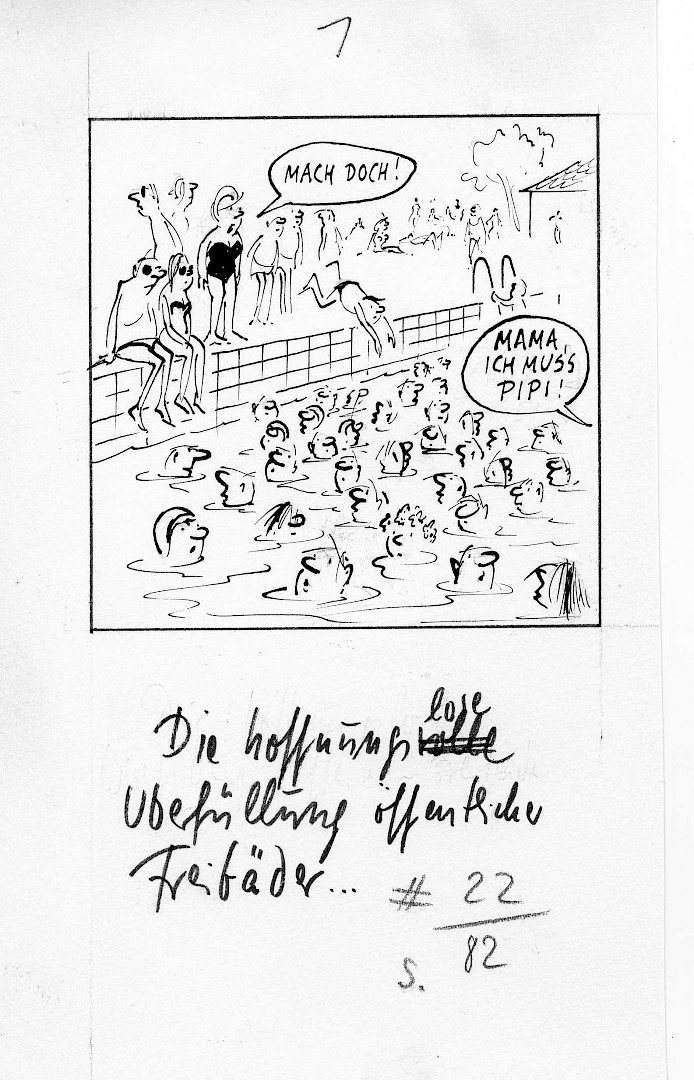 1
MACH DOCH!
MAMA,
ICH MUSS
PIPI!
lose
Die hoffnungsvolle
Übefüllung öffentlicher
Freibäder...
# 22
82
S.